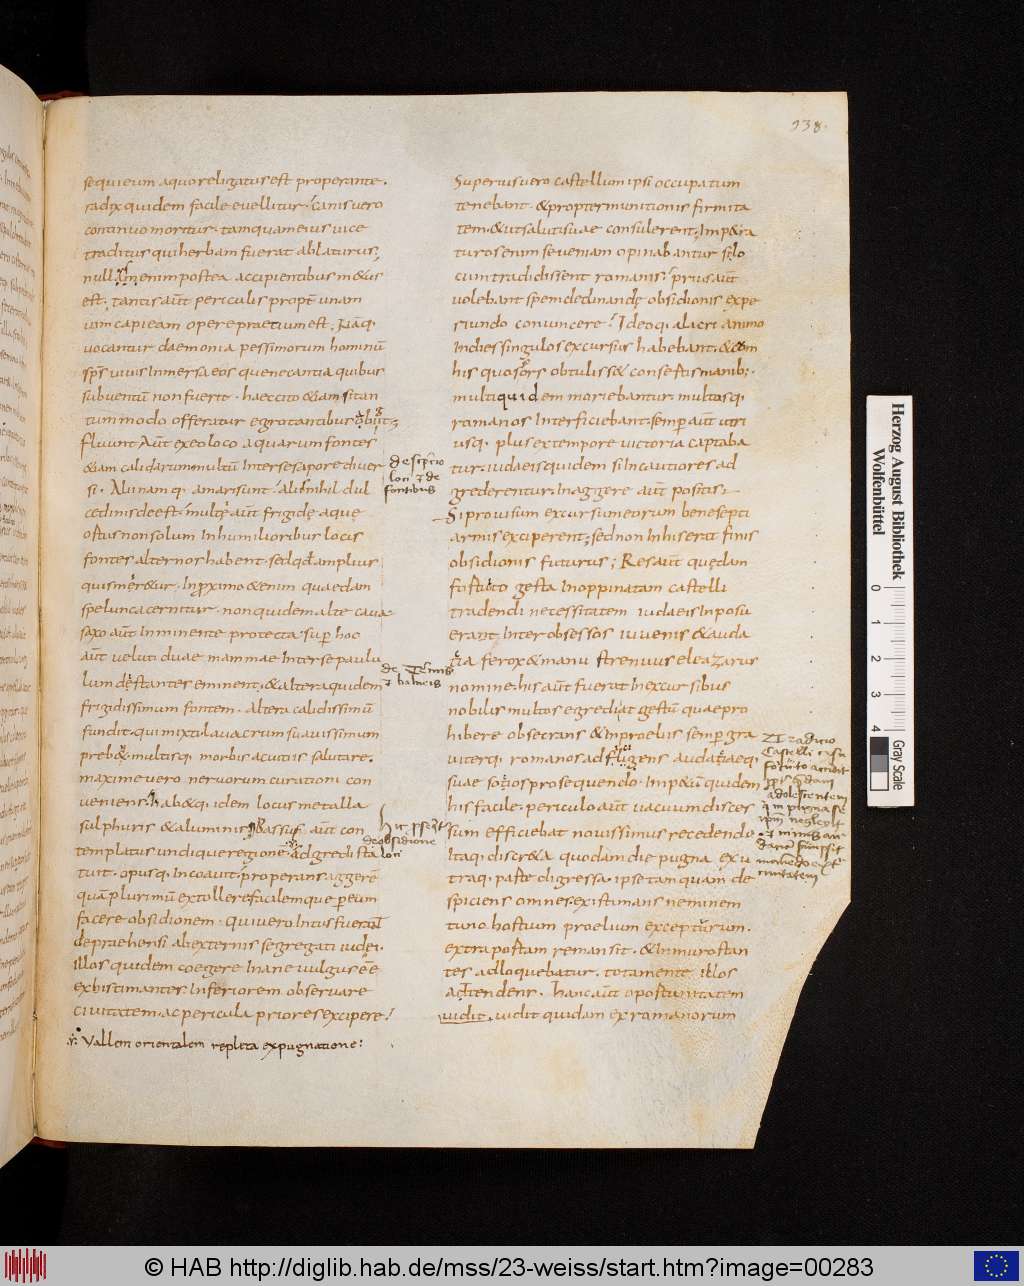 138.
sequieum aquoreligatus est properante.
radix quidem facile evellitur. canis vero
continuo moritur. tamquam eius vice
traditus qui herbam fuerat ablaturus;
enim postea accipientibus m&us
est. tantis aūt periculis propt̄ unam
vim capi eam opere praetium est. Nāq.
vocantur daemonia pessimorum hominū
sp̄s vivis Inmersa eos quenecantia quibus
subventū non fuerit. haec cito &iam si tan
tummodo offeratur egrotantibus
fluunt Aūt exeoloco aquarum fontes
&iam calidarum multū Inter se sapore diver
si. Alii namq. amari sunt. alii nihil dul
cedinis deest. multę aūt frigidę aquę
ostiis non solum Inhumilioribus locis
fontes alternos habent. sed qđ amplius
quis mir&ur. In proximo &enim quaedam
spelunca cernitur. non quidem alte cava
saxo aūt Inminente protecta. sup̄ hoc
aūt veluti duae mammae Inter se paulu
lum distantes eminent. & altera quidem
frigidissimum fontem. altera calidissimū
fundit. qui mixti lavacrum suavissimum
preb&. multisq. morbis acutiis salutare.
maxime vero nervorum curationi con
veniens. hab&q. idem locus metalla
sulphuris & aluminis. Bassus aūt con
templatus undique regione Adgredi sta
tuit. opusq. Incoavit properans aggerē
quā plurimū extollere facilemque per eum
facere obsidionem. Qui vero Intus fuerant
depraehensi ab externis segregati iudei.
illos quidem coegere Inane vulgus eē
existimantes Inferiorem observare
civitatem. ac pericula priores excipere!
Vallem orientalem repleta expugnatione:
descriptio
loci & de
fontibus
de Termis
& balneis
Hic Bassus
de obsidione
loci
Superius vero castellum ipsi occupatum
tenebant. & propter munitionis firmita
tem. & ut saluti suae consulerent. Imp&ra
turos enim se veniam opinabantur si elo
cum tradidissent romanis. prius aūt
volebant spem declinandę obsidionis expe
riundo convincere! Ideoq. alacri animo
Indies singulos excursus habebant. & cum
his quos fors obtuliss& consertis manib;.
multi quidem moriebantur. multosq.
romanos Interficiebant. semp̄ aūt utri
usq. plus ex tempore victoria captaba
tur. iudaeis quidem si Incautiores ad
grederentur. Inaggere aūt positis.
Si provisum excursum eorum bene septi
armis exciperent; sed non Inhis erat finis
obsidionis futurus; Res aūt quędam
fortuito gesta Inoppinatam castelli
tradendi necessitatem iudaeis Inposu
erant Inter obsessos iuvenis & auda
tia ferox & manu strenuus eleazarus
nomine. his aūt fuerat Inexcursibus
nobilis multos egredi at gestū quae pro
hibere obsecrans & Inproeliis semp̄ gra
viterq. romanos adfligens audatiaeq.
suae sotios prosequendo. Imp&ū quidem
his facile. periculo aūt vacuum disces
sum efficiebat novissimus recedendo.
Itaq. discr&a quodam die pugna. ex u
traq. parte digressa. ipse tamquam de
spiciens omnes. existimans neminem
tunc hostium proelium excepturum.
extra portam remansit. & Inmuro stan
tes adloquebatur. tota mente illos
adtendens. hanc aūt oportunitatem
vidit. vidit quidam ex romanorum
Traditio
Castelli casu
fortuito accidit
adolescentem
Herzog August Bibliothek
Wolfenbüttel
0 1 2 3 4
Gray Scale
© HAB http://diglib.hab.de/mss/23-weiss/start.htm?image=00283